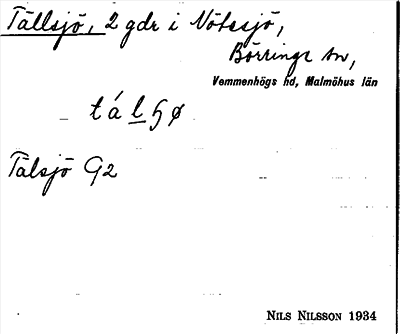 Tällsjö, 2 gdr i Nötesjö,
Börringe sn,
Vemmenhögs hd, Malmöhus län
tálɧø
Talsjö G2
NILS NILSSON 1934